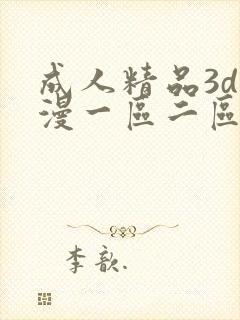 成人精品3d
漫一區二區
李歆.